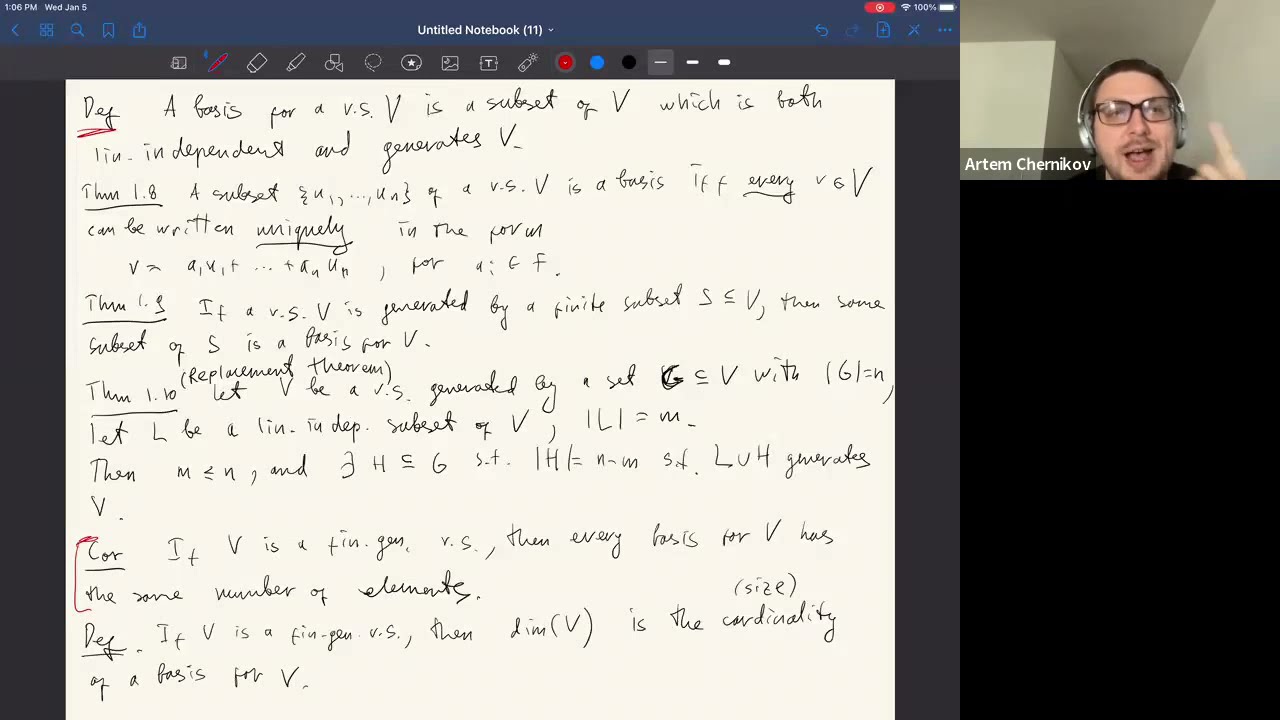 1:06 PM Wed Jan 5
100%
Untitled Notebook (11)
Artem Chernikov
Def A basis for a v.s. V is a subset of V which is both
lin. independent and generates V.
Thm 1.8 A subset {u1, ..., un} of a v.s. V is a basis Iff every v ∈ V
can be written uniquely in the form
v = a1u1 + ... + anun, for ai ∈ F.
Thm 1.9 If a v.s. V is generated by a finite subset S ⊆ V, then some
subset of S is a basis for V.
(Replacement theorem)
Thm 1.10 Let V be a v.s. generated by a set G ⊆ V with |G|=n,
let L be a lin. indep. subset of V, |L| = m.
Then m ≤ n, and ∃ H ⊆ G s.t. |H|= n-m s.t. L∪H generates
V.
Cor If V is a fin. gen. v.s., then every basis for V has
the same number of elements.
(size)
Def. If V is a fin-gen. v.s., then dim(V) is the cardinality
of a basis for V.